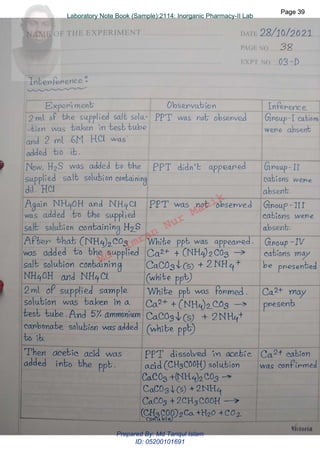 Page 39
Laboratory Note Book (Sample):2114: Inorganic Pharmacy-II Lab
NAME OF THE EXPERIMENT
DATE 28/10/2021
PAGE NO. 38
EXPT. NO. 03-D
Interference :
Experiment
Observation
Inference
2 ml of the supplied salt solu-
-tion was taken in test tube
and 2 ml 6M HCl was
added to it.
PPT was not observed
Group-I cations
were absent
Now, H2S was added to the
supplied salt solution containing
dil. HCl
PPT didn't appeared
Group-II
cations were
absent.
Again NH4OH and NH4Cl
was added to the supplied
salt solution containing H2S
PPT was not observed
Group-III
cations were
absent.
After that (NH4)2CO3
was added to the supplied
salt solution containing
NH4OH and NH4Cl
White ppt was appeared.
Ca2+ + (NH4)2CO3 →
CaCO3↓(s) + 2NH4+
(white ppt)
Group-IV
cations may
be presented
2 ml of supplied sample
solution was taken in a
test tube. And 5% ammonium
carbonate solution was added
to it.
White ppt was formed.
Ca2+ + (NH4)2CO3 →
CaCO3↓(s) + 2NH4+
(white ppt)
Ca2+ may
present
Then acetic acid was
added into the ppt.
PPT dissolved in acetic
acid (CH3COOH) solution
CaCO3 +(NH4)2CO3 →
CaCO3↓(s) + 2NH4
CaCO3 + 2CH3COOH →
(CH3COO)2Ca +H2O +CO2
(soluble)
Ca2+ cation
was confirmed
Nur
Victoria
Prepared By: Md Tariqul Islam
ID: 05200101691